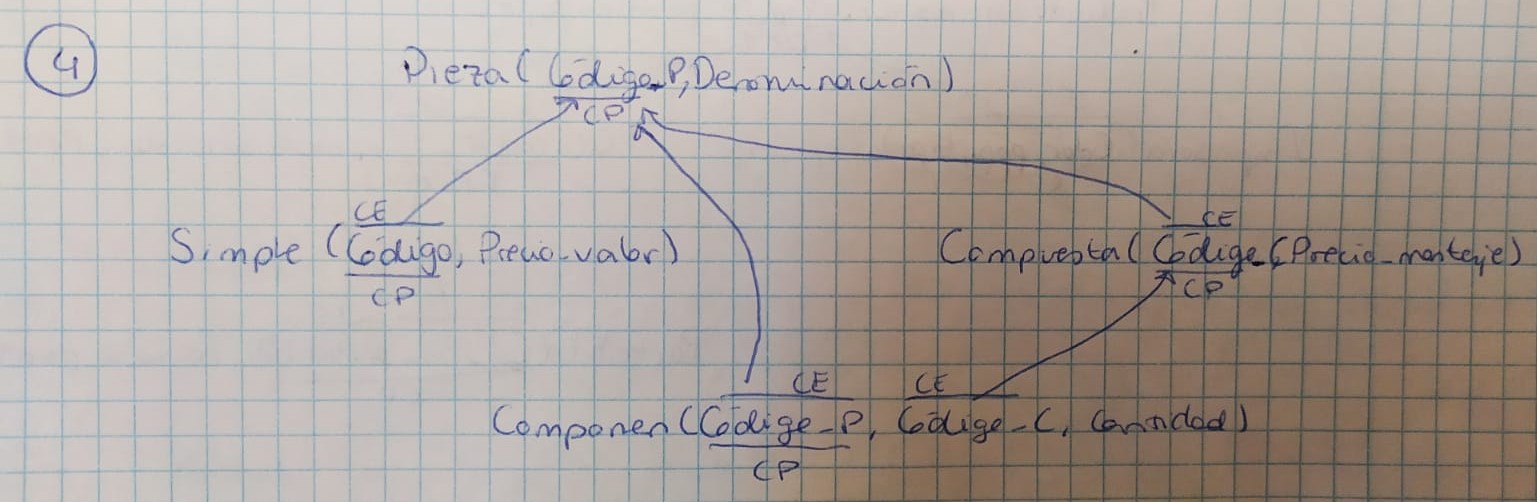 4
Pieza (Código_P, Denominación)
CP
CE CE
Simple (Código, Precio_valor) Compuesta (Código_C, Precio_montaje)
CP CP
CE CE
Componen (Código_P, Código_C, Cantidad)
CP